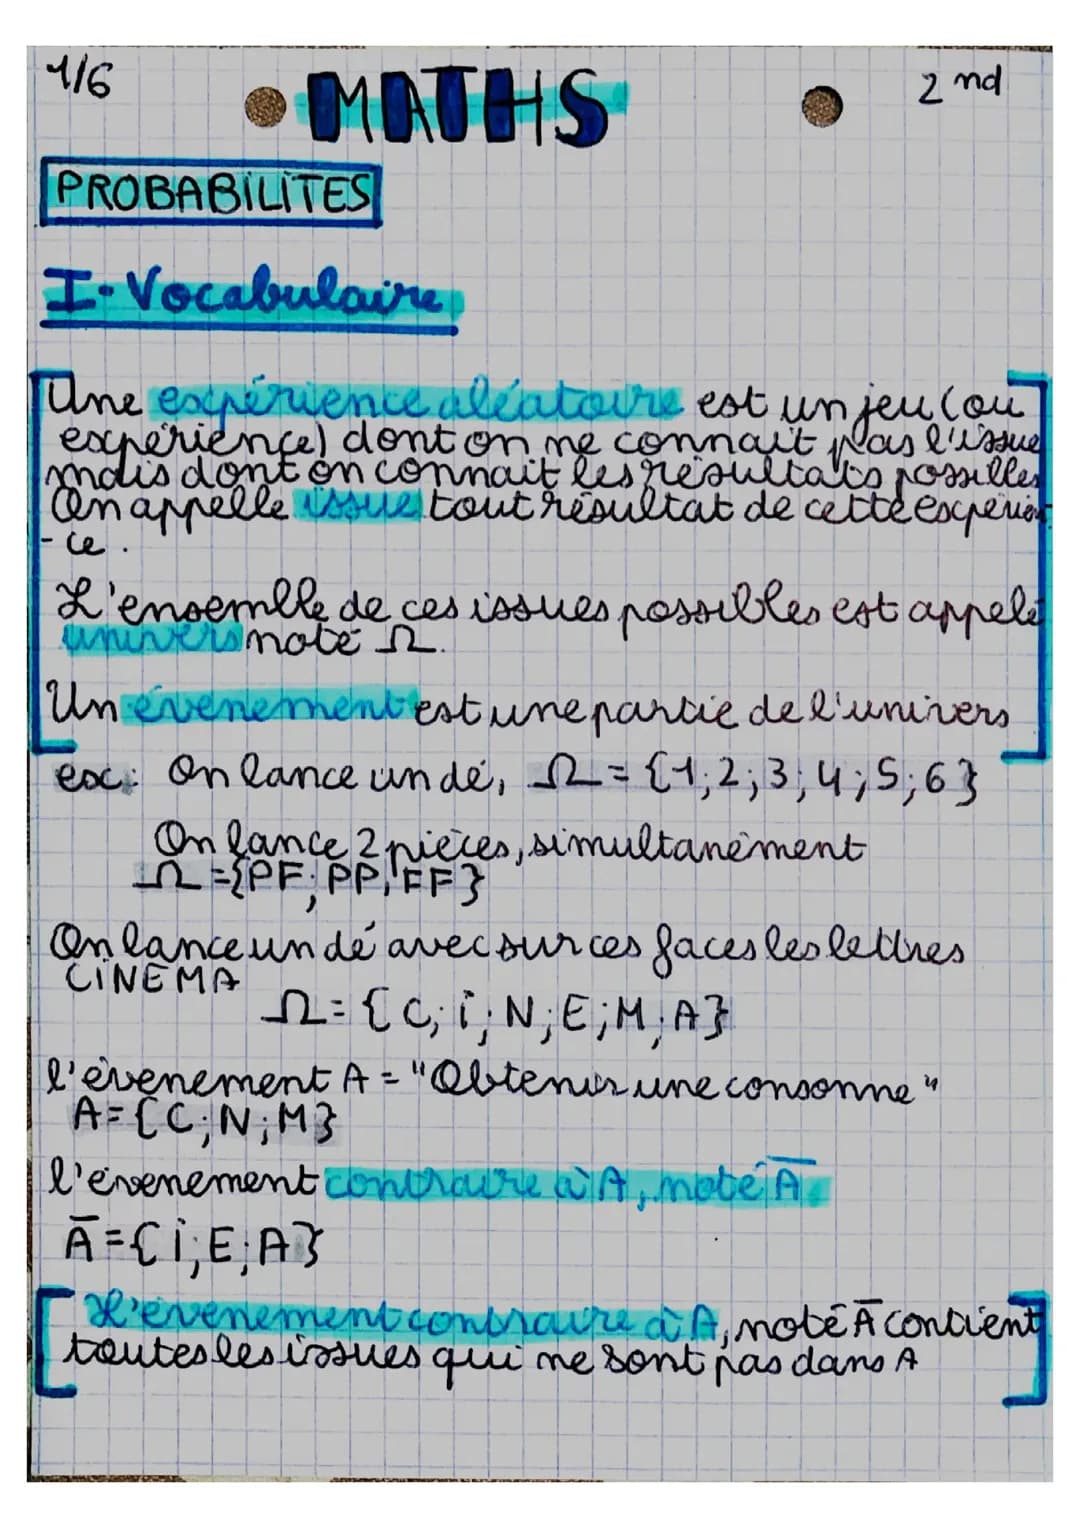 1/6
MATHS
2 nd
PROBABILITES
I- Vocabulaire
Une expérience aléatoire est un jeu (ou
expérience) dont on ne connait pas l'issue
mais dont on connait les résultats possibles
On appelle issue tout résultat de cette expérien
-ce.
L'ensemble de ces issues possibles est appelé
univers noté Ω.
Un évenement est une partie de l'univers
ex: On lance un dé, Ω = {1;2;3;4;5;6}
On lance 2 pièces, simultanément
Ω={PF; PP; FF}
On lance un dé avec sur ces faces les lettres
CINEMA
Ω= {C; i; N; E; M; A}
l'évenement A = "Obtenir une consonne"
A={C; N; M}
l'évenement contraire à A, noté Ā.
Ā={i; E; A}
L'évenement contraire à A, noté Ā contient
toutes les issues qui ne sont pas dans A